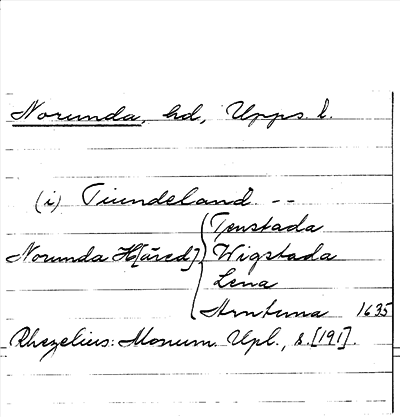 Norunda, hd, Upps. l.
(i) Tiundeland --
Tenstada
Norunda H[äred] Wigstada
Lena
1635
Rhezelius: Monum. Upl., s. [191].